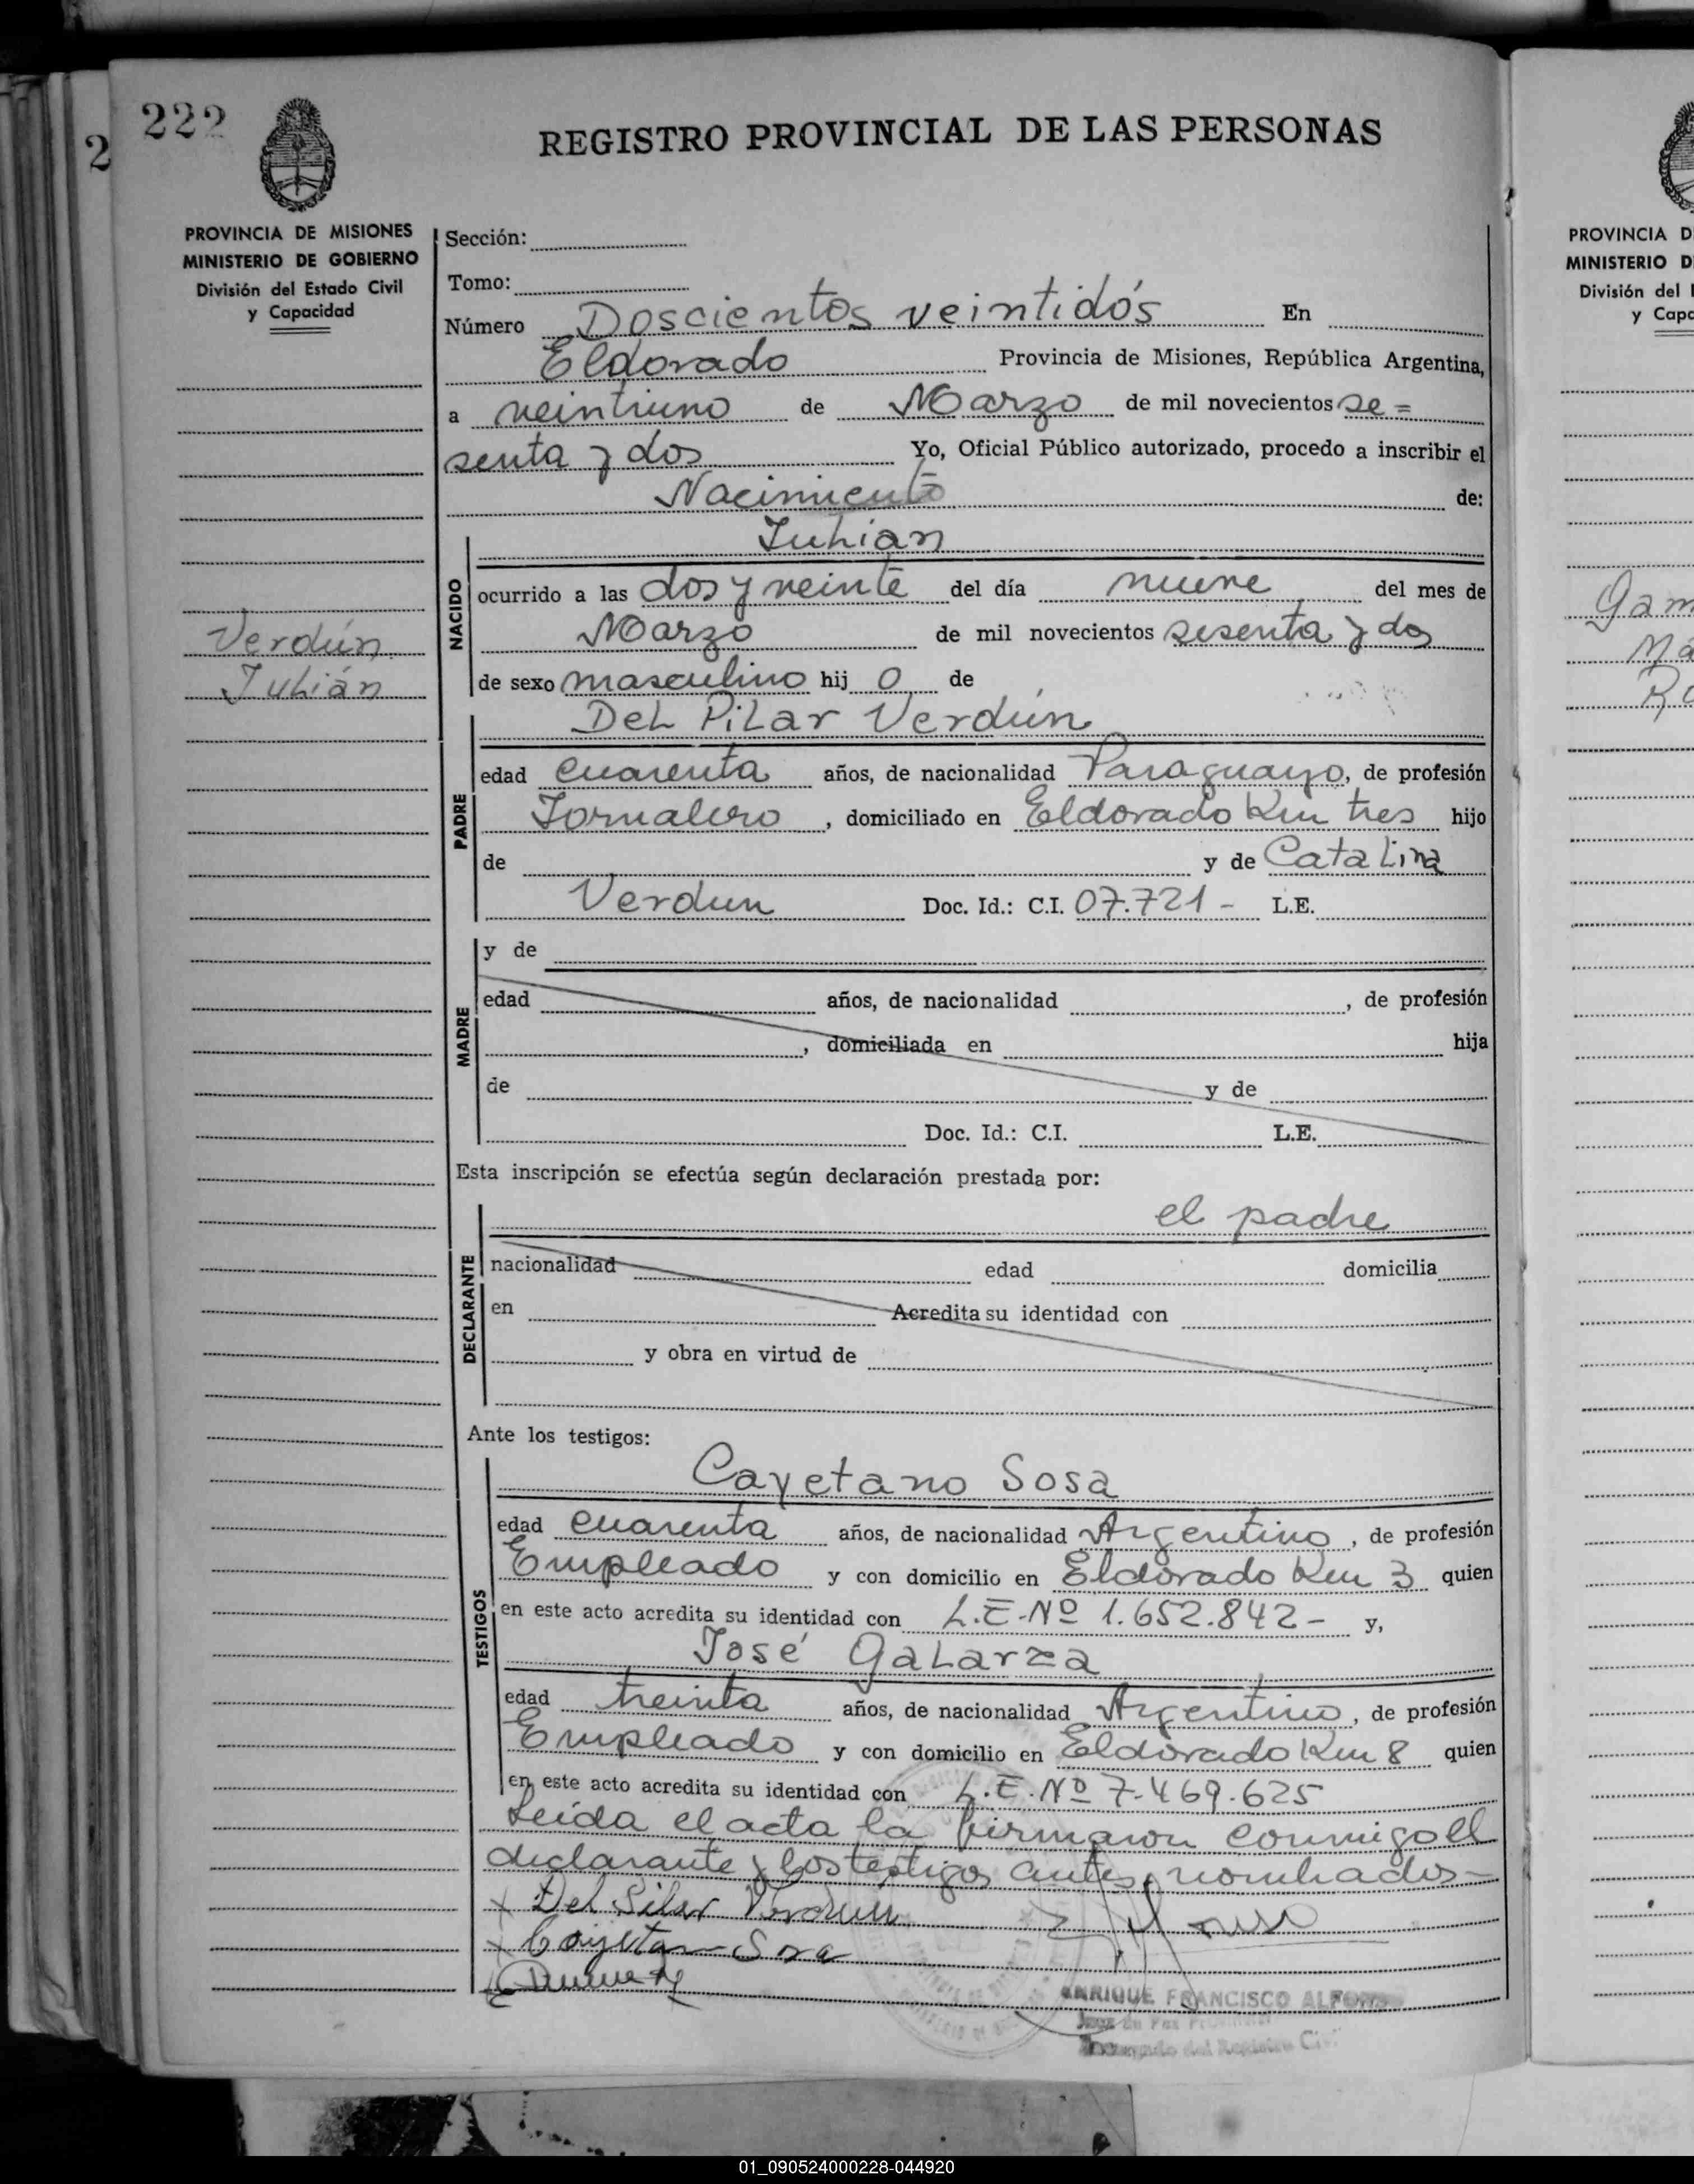 222
2
REGISTRO PROVINCIAL DE LAS PERSONAS
PROVINCIA DE MISIONES
MINISTERIO DE GOBIERNO
División del Estado Civil
y Capacidad
Verdún
Julián
Sección:
Tomo:
Número Doscientos veintidós En
Eldorado Provincia de Misiones, República Argentina,
a veintiuno de Marzo de mil novecientos se=
senta y dos Yo, Oficial Público autorizado, procedo a inscribir el
Nacimiento de:
NACIDO
Julian
ocurrido a las dos y veinte del día nueve del mes de
Marzo de mil novecientos sesenta y dos
de sexo masculino hij o de
PADRE
Del Pilar Verdún
edad cuarenta años, de nacionalidad Paraguayo, de profesión
Jornalero, domiciliado en Eldorado Km tres hijo
de y de Catalina
Verdun Doc. Id.: C.I. 07.721- L.E.
MADRE
y de
edad años, de nacionalidad , de profesión
, domiciliada en hija
de y de
Doc. Id.: C.I. L.E.
Esta inscripción se efectúa según declaración prestada por:
DECLARANTE
el padre
nacionalidad edad domicilia
en Acredita su identidad con
y obra en virtud de
Ante los testigos:
TESTIGOS
Cayetano Sosa
edad cuarenta años, de nacionalidad Argentino, de profesión
Empleado y con domicilio en Eldorado Km 3 quien
en este acto acredita su identidad con L.E.Nº 1.652.842- y,
José Galarza
edad treinta años, de nacionalidad Argentino, de profesión
Empleado y con domicilio en Eldorado Km 8 quien
en este acto acredita su identidad con L.E.Nº 7.469.625
Leída el acta la firmaron conmigo el
declarante y los testigos antes nombrados=
x Del Pilar Verdun
x Cayetano Sosa
ENRIQUE FRANCISCO ALFONSO
Juez de Paz
Encargado del Registro Civil
PROVINCIA D
MINISTERIO D
División del
y Capa
Gam
Má
01_090524000228-044920